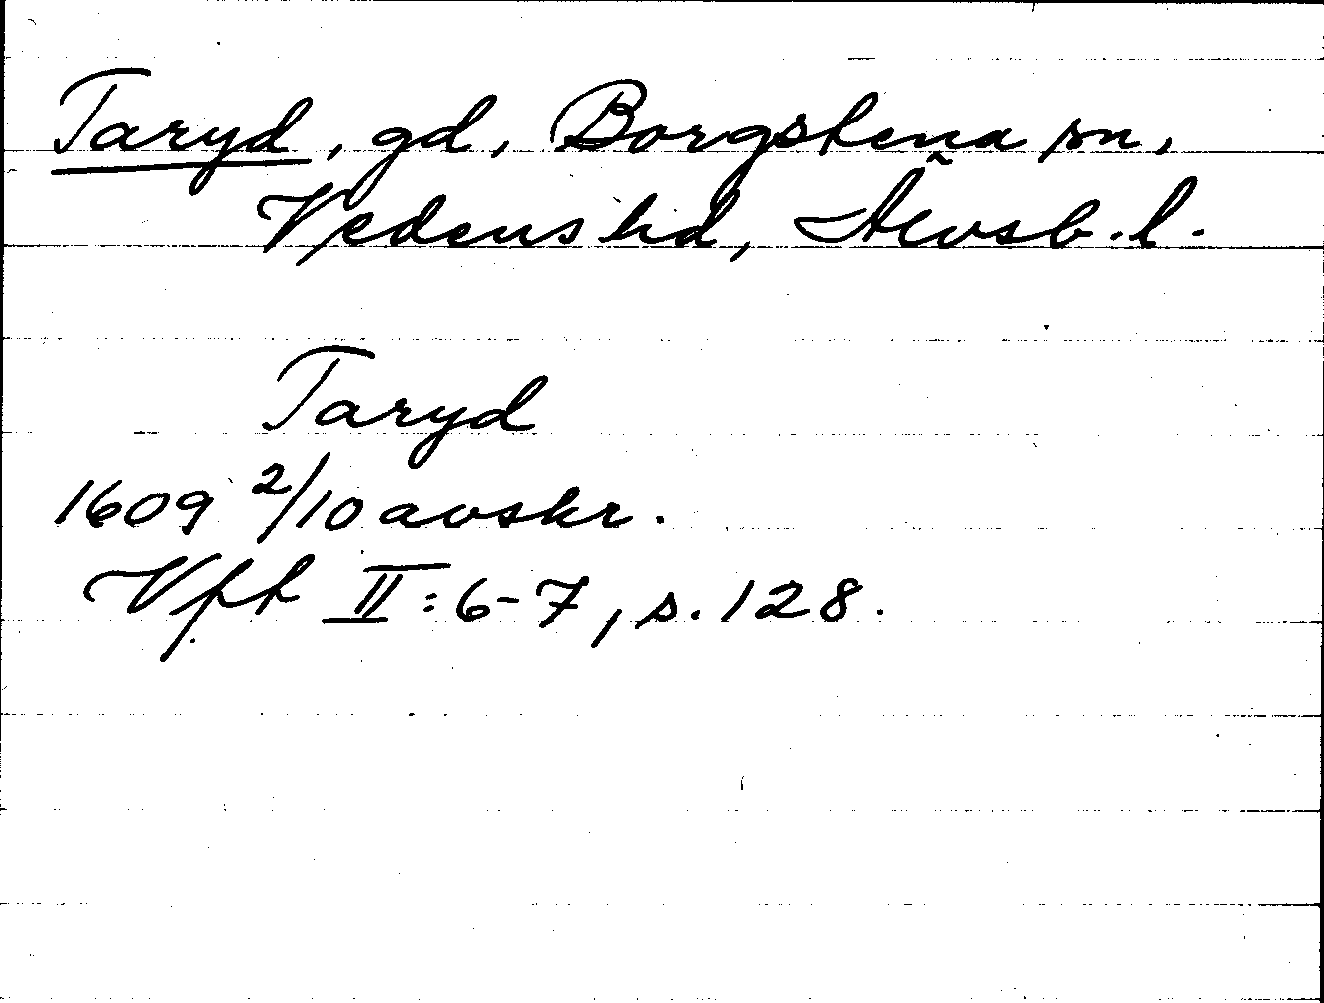 Taryd, gd, Borgstena sn,
Vedens hd, Älvsb. l.
Taryd
1609 2/10 avskr.
Vft II: 6-7, s. 128.